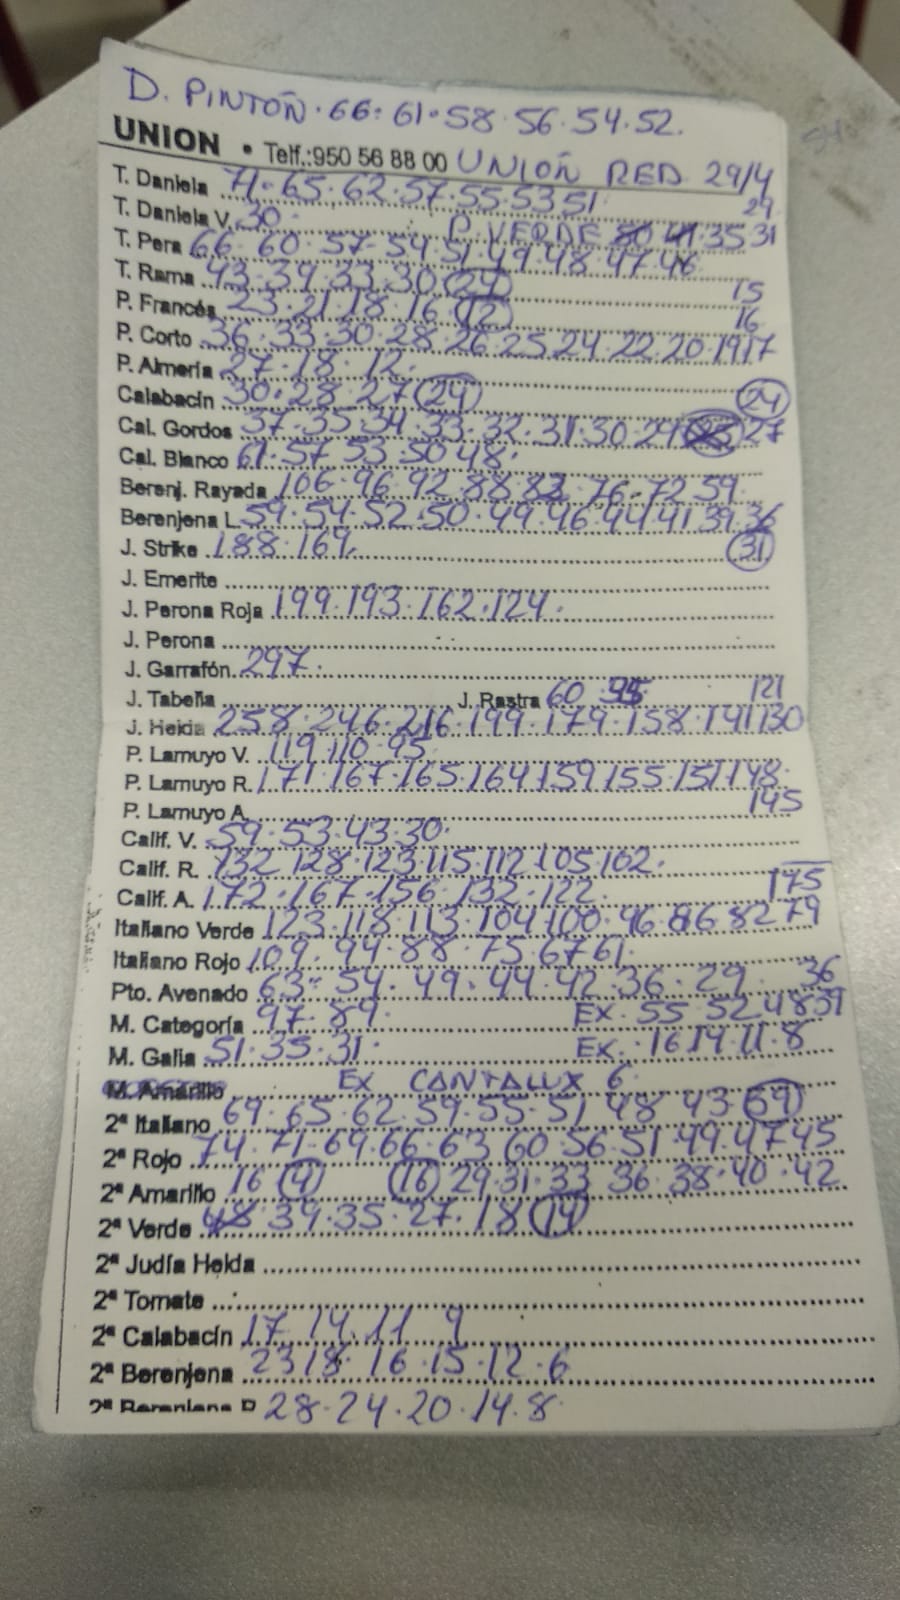 D. PINTOÑ · 66 · 61 · 58 · 56 · 54 · 52.
UNION • Telf.:950 56 88 00 UNIOÑ RED 29/4
T. Daniela 71 · 65 · 62 · 57 · 55 · 53 51 29
T. Daniela V. 30 · P. VERDE 35 31
T. Pera 66 · 60 · 57 · 54 51 · 49 · 48 · 47 · 46
T. Rama 43 · 39 · 33 · 30 15
P. Francés 23 · 21 · 18 · 16 · 12 16
P. Corto 36 · 33 · 30 · 28 · 26 · 25 24 · 22 · 20 · 19 17
P. Almería 27 · 18 · 12 ·
Calabacín 30 · 28 · 27 24 24
Cal. Gordos 37 · 35 · 34 · 33 · 32 · 31 · 30 · 29 27
Cal. Blanco 61 · 57 53 · 50 48 ·
Berenj. Rayada 106 · 96 · 92 · 88 82 · 76 · 72 59
Berenjena L. 59 · 54 · 52 · 50 · 49 · 46 · 44 · 41 39 · 36
J. Strike 188 · 169. 31
J. Emerite
J. Perona Roja 199 · 193 · 162 · 124 ·
J. Perona
J. Garrafón 297 ·
J. Tabeña J. Rastra 60 121
J. Helda 258 · 246 · 216 · 199 · 179 · 158 · 141 130
P. Lamuyo V. 119 110 · 95
P. Lamuyo R. 171 · 167 · 165 · 164 159 155 · 151 148 ·
P. Lamuyo A. 145
Calif. V. 59 · 53 · 43 · 30 ·
Calif. R. 132 128 · 123 115 · 112 105 · 102 ·
Calif. A. 172 · 167 · 156 · 132 · 122 175
Italiano Verde 123 · 118 · 113 · 104 100 · 96 86 82 79
Italiano Rojo 109 · 94 · 88 · 75 67 61 ·
Pto. Avenado 63 · 54 · 49 · 44 · 42 · 36 · 29 36
M. Categoría 97 · 89 · EX · 55 · 52 48 39
M. Galia 51 · 35 · 31 · EX · 16 14 · 11 · 8
M. Amarillo EX CANTALUX 6
2ª Italiano 69 · 65 · 62 · 59 · 55 · 51 48 43
2ª Rojo 74 · 71 · 69 · 66 · 63 60 56 · 51 · 49 · 47 45
2ª Amarillo 16 16 29 · 31 · 33 36 · 38 · 40 · 42
2ª Verde 48 39 · 35 · 27 · 18 14
2ª Judía Helda
2ª Tomate
2ª Calabacín 17 14 · 11 9
2ª Berenjena 23 18 · 16 · 15 · 12 · 6
2ª Berenjena R 28 · 24 · 20 · 14 · 8